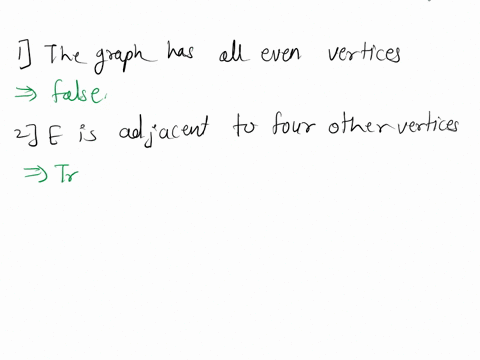 1] The graph has all even vertices
⇒ false.
2] E is adjacent to four other vertices
⇒ Tr